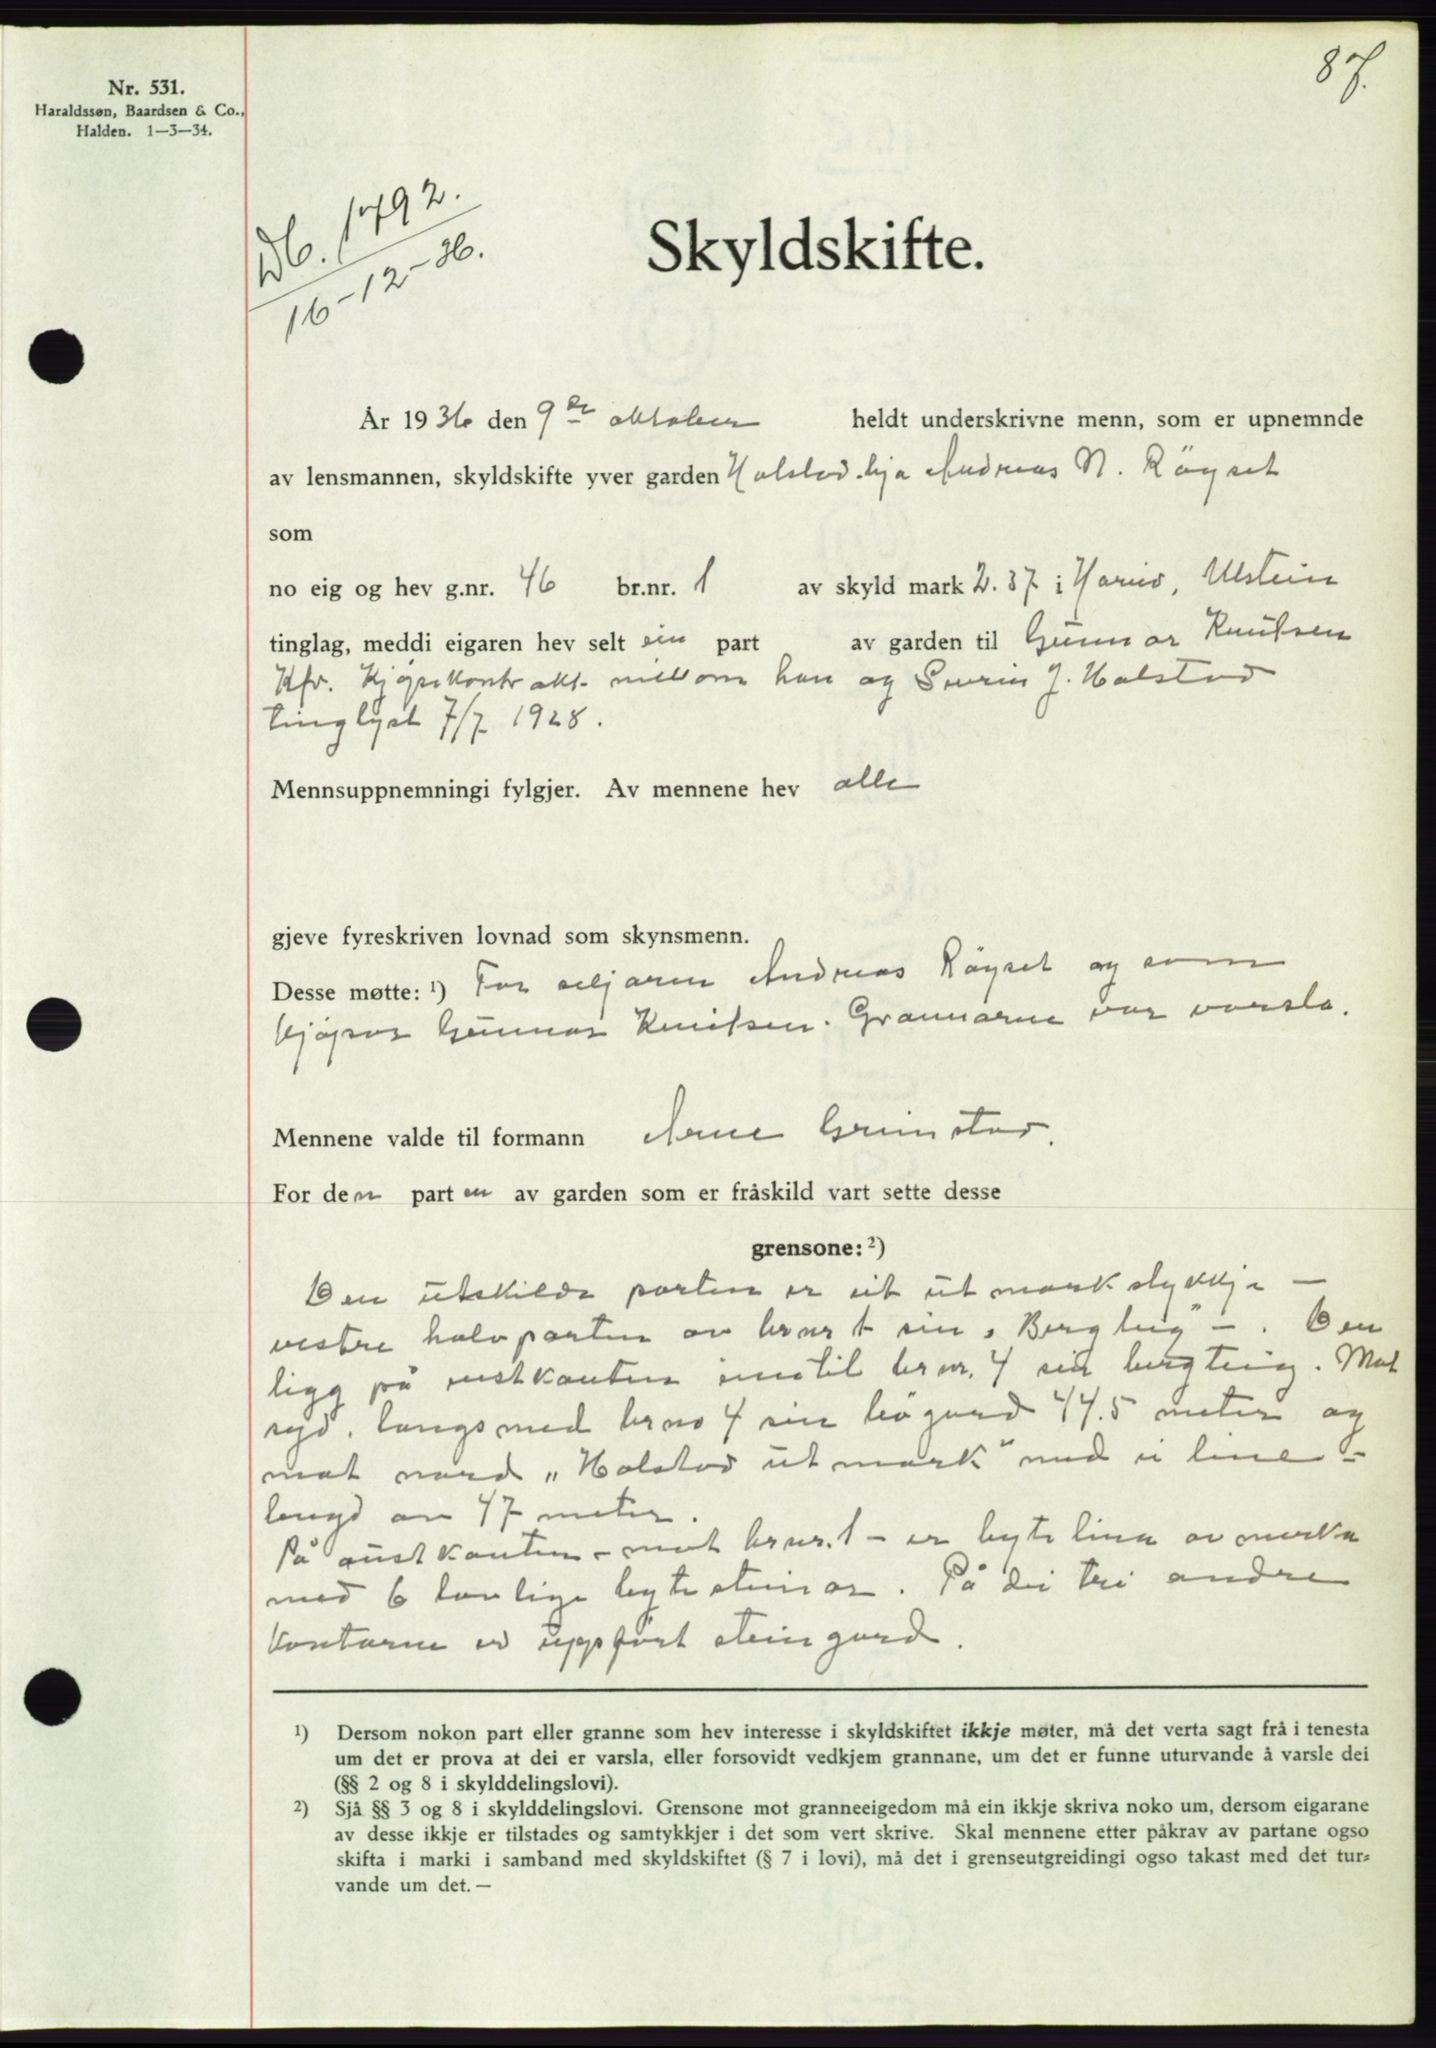 87.
Nr. 531.
Haraldssøn, Baardsen & Co.,
Halden. 1—3—34.
Db. 1792.
16-12-36.
Skyldskifte.
År 1936 den 9de oktober heldt underskrivne menn, som er upnemnde
av lensmannen, skyldskifte yver garden Holstad hja Andreas N. Röyset
som
no eig og hev g.nr. 46 br.nr. 1 av skyld mark 2.37 i Hareid, Ulstein
tinglag, meddi eigaren hev selt ein part av garden til Gunnar Knutsen
Kfr. Kjöpekontrakt millom han og Severin J. Holstad
tinglyst 7/7 1928.
Mennsuppnemningi fylgjer. Av mennene hev alle
gjeve fyreskriven lovnad som skynsmenn.
Desse møtte: 1) For seljaren Andreas Röyset og som
kjöpar Gunnar Knutsen. Grannarne var varsla.
Mennene valde til formann Arne Grimstad.
For den parten av garden som er fråskild vart sette desse
grensone: 2)
Den utskilde parten er eit utmarkstykkje —
vestre halvparten av br nr 1 sin „Bergteig" –. Den
ligg på vestkanten inntil br nr. 4 sin bergteig. Mot
syd, langs med br no 4 sin bögard 44.5 meter og
mot nord „Holstad utmark" med ei line-
lengd av 47 meter.
På austkanten – mot br nr. 1 – er bytelina avmerka
med 6 lovlige bytesteinar. På dei tri andre
kantarne er uppfört steingard.
1) Dersom nokon part eller granne som hev interesse i skyldskiftet ikkje møter, må det verta sagt frå i tenesta
um det er prova at dei er varsla, eller forsovidt vedkjem grannane, um det er funne uturvande å varsle dei
(§§ 2 og 8 i skylddelingslovi).
2) Sjå §§ 3 og 8 i skylddelingslovi. Grensone mot granneeigedom må ein ikkje skriva noko um, dersom eigarane
av desse ikkje er tilstades og samtykkjer i det som vert skrive. Skal mennene etter påkrav av partane ogso
skifta i marki i samband med skyldskiftet (§ 7 i lovi), må det i grenseutgreidingi ogso takast med det tur-
vande um det. —